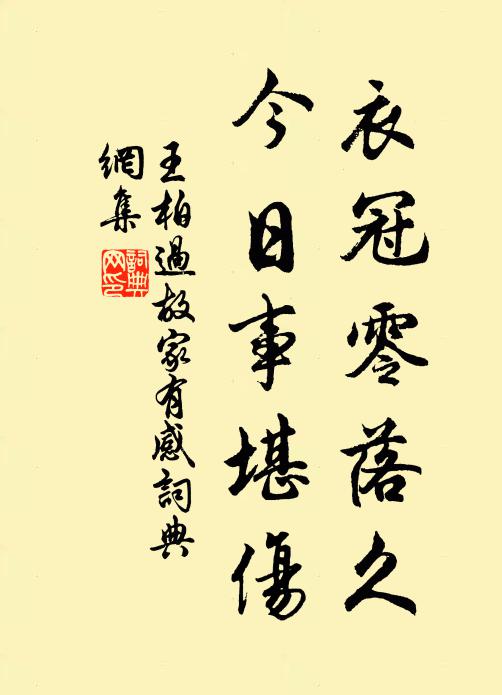 衣冠零落久
今日事堪傷
王柏過故家有感詞典
網集
詞典
網印